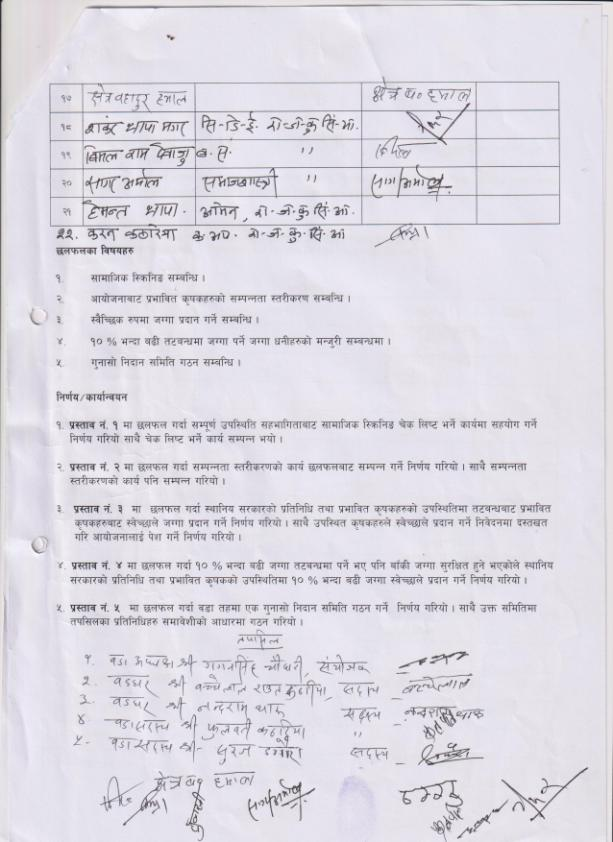 १७ क्षेत्र वहादुर हमाल क्षेत्र ब० हमाल
१८ शंकर थापा मगर सि-डि-ई. रा-जं-कु सिं-आ.
१९ बिमल राम ब. सं. "
२० अर्याल समाजशास्त्री "
२१ हेमन्त थापा. अमिन, रा-जं-कु सिं. आ.
२२. करन कठरिया क.अप. रा-जं-कु. सिं. आ
छलफलका विषयहरु
१. सामाजिक स्किनिङ सम्बन्धि ।
२. आयोजनाबाट प्रभावित कृषकहरुको सम्पन्नता स्तरीकरण सम्बन्धि ।
३. स्वैच्छिक रुपमा जग्गा प्रदान गर्ने सम्बन्धि ।
४. १० % भन्दा बढी तटबन्धमा जग्गा पर्ने जग्गा धनीहरुको मन्जुरी सम्बन्धमा ।
५. गुनासो निदान समिति गठन सम्बन्धि ।
निर्णय/कार्यान्वयन
१. प्रस्ताव नं. १ मा छलफल गर्दा सम्पूर्ण उपस्थिति सहभागिताबाट सामाजिक स्किनिङ चेक लिष्ट भर्ने कार्यमा सहयोग गर्ने
निर्णय गरियो साथै चेक लिष्ट भर्ने कार्य सम्पन्न भयो ।
२. प्रस्ताव नं. २ मा छलफल गर्दा सम्पन्नता स्तरीकरणको कार्य छलफलबाट सम्पन्न गर्ने निर्णय गरियो । साथै सम्पन्नता
स्तरीकरणको कार्य पनि सम्पन्न गरियो ।
३. प्रस्ताव नं. ३ मा छलफल गर्दा स्थानिय सरकारको प्रतिनिधि तथा प्रभावित कृषकहरुको उपस्थितिमा तटवन्धबाट प्रभावित
कृषकहरुबाट स्वेच्छाले जग्गा प्रदान गर्ने निर्णय गरियो । साथै उपस्थित कृषकहरुले स्वेच्छाले प्रदान गर्ने निवेदनमा दस्तखत
गरि आयोजनालाई पेश गर्ने निर्णय गरियो ।
४. प्रस्ताव नं. ४ मा छलफल गर्दा १० % भन्दा बढी जग्गा तटबन्धमा पर्ने भए पनि बाँकी जग्गा सुरक्षित हुने भएकोले स्थानिय
सरकारको प्रतिनिधि तथा प्रभावित कृषकको उपस्थितिमा १० % भन्दा बढी जग्गा स्वेच्छाले प्रदान गर्ने निर्णय गरियो ।
५. प्रस्ताव नं. ५ मा छलफल गर्दा वडा तहमा एक गुनासो निदान समिति गठन गर्ने निर्णय गरियो । साथै उक्त समितिमा
तपसिलका प्रतिनिधिहरु समावेशीको आधारमा गठन गरियो ।
तपसिल
१. वडा अध्यक्ष श्री गगनसिंह चौधरी, संयोजक
२. वडघर श्री कठरिया, सदस्य
३. वडघर श्री नन्दराम थारु सदस्य
४ वडा सदस्य श्री फुलवती कठरिया "
५- वडा सदस्य श्री- सुरज सदस्य
क्षेत्र बद्द हमाल